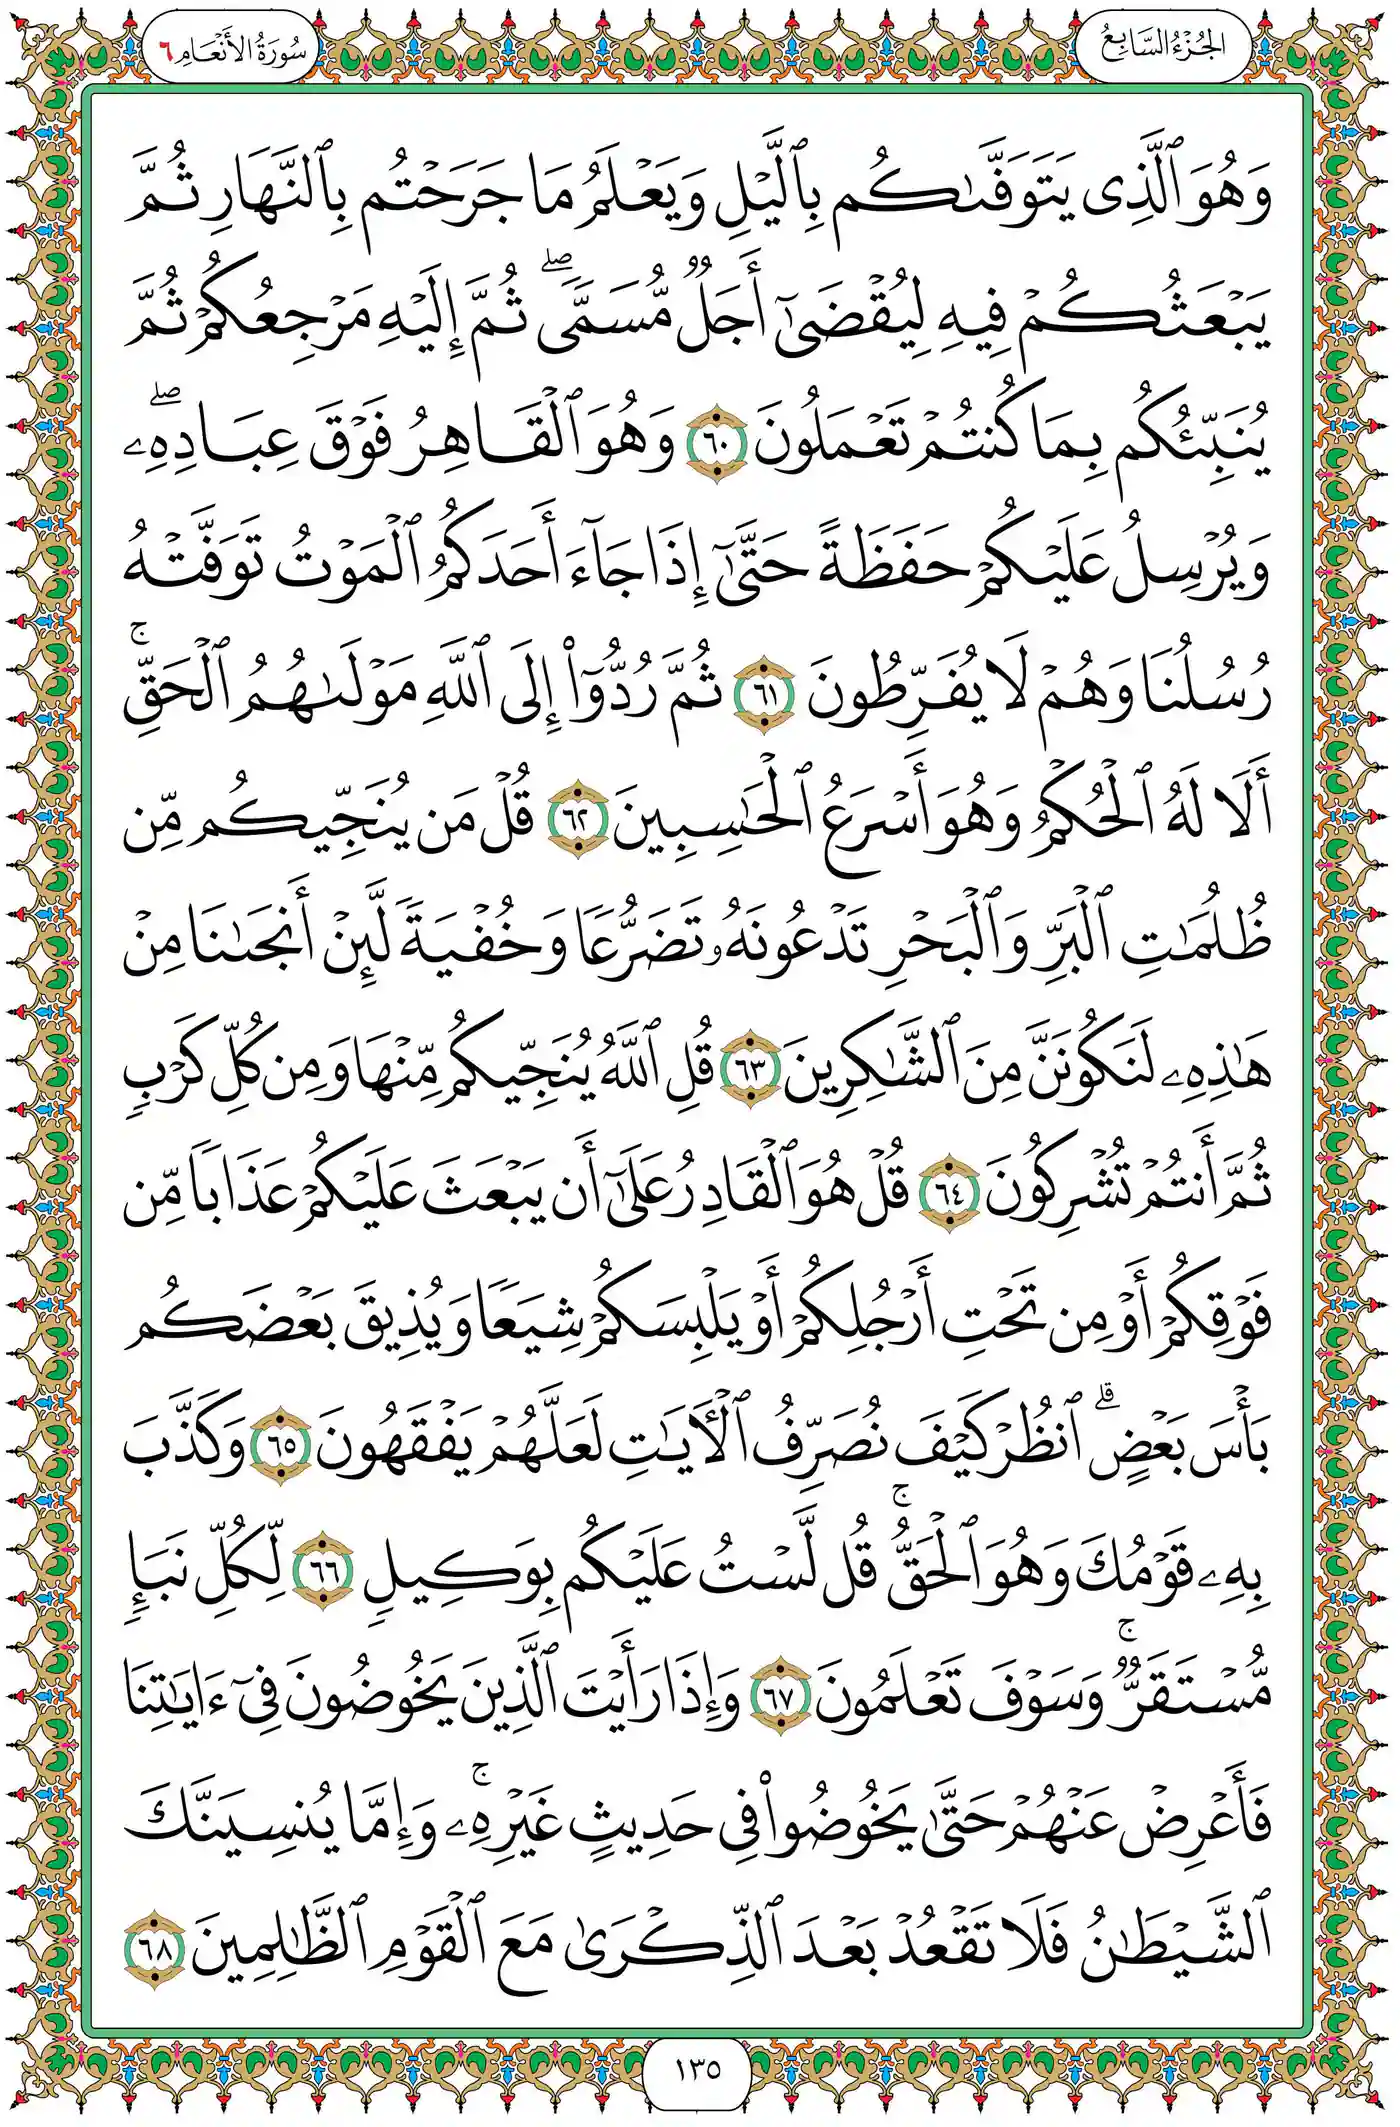 الجُزْءُ السَّابِعُ
سُورَةُ الأَنْعَامِ ٦
وَهُوَ ٱلَّذِى يَتَوَفَّىٰكُم بِٱلَّيْلِ وَيَعْلَمُ مَا جَرَحْتُم بِٱلنَّهَارِ ثُمَّ
يَبْعَثُكُمْ فِيهِ لِيُقْضَىٰٓ أَجَلٌ مُّسَمًّى ۖ ثُمَّ إِلَيْهِ مَرْجِعُكُمْ ثُمَّ
يُنَبِّئُكُم بِمَا كُنتُمْ تَعْمَلُونَ ٦٠ وَهُوَ ٱلْقَاهِرُ فَوْقَ عِبَادِهِۦ ۖ
وَيُرْسِلُ عَلَيْكُمْ حَفَظَةً حَتَّىٰٓ إِذَا جَآءَ أَحَدَكُمُ ٱلْمَوْتُ تَوَفَّتْهُ
رُسُلُنَا وَهُمْ لَا يُفَرِّطُونَ ٦١ ثُمَّ رُدُّوٓا۟ إِلَى ٱللَّهِ مَوْلَىٰهُمُ ٱلْحَقِّ ۚ
أَلَا لَهُ ٱلْحُكْمُ وَهُوَ أَسْرَعُ ٱلْحَـٰسِبِينَ ٦٢ قُلْ مَن يُنَجِّيكُم مِّن
ظُلُمَـٰتِ ٱلْبَرِّ وَٱلْبَحْرِ تَدْعُونَهُۥ تَضَرُّعًا وَخُفْيَةً لَّئِنْ أَنجَىٰنَا مِنْ
هَـٰذِهِۦ لَنَكُونَنَّ مِنَ ٱلشَّـٰكِرِينَ ٦٣ قُلِ ٱللَّهُ يُنَجِّيكُم مِّنْهَا وَمِن كُلِّ كَرْبٍ
ثُمَّ أَنتُمْ تُشْرِكُونَ ٦٤ قُلْ هُوَ ٱلْقَادِرُ عَلَىٰٓ أَن يَبْعَثَ عَلَيْكُمْ عَذَابًا مِّن
فَوْقِكُمْ أَوْ مِن تَحْتِ أَرْجُلِكُمْ أَوْ يَلْبِسَكُمْ شِيَعًا وَيُذِيقَ بَعْضَكُم
بَأْسَ بَعْضٍ ۗ ٱنظُرْ كَيْفَ نُصَرِّفُ ٱلْـَٔايَـٰتِ لَعَلَّهُمْ يَفْقَهُونَ ٦٥ وَكَذَّبَ
بِهِۦ قَوْمُكَ وَهُوَ ٱلْحَقُّ ۚ قُل لَّسْتُ عَلَيْكُم بِوَكِيلٍ ٦٦ لِّكُلِّ نَبَإٍ
مُّسْتَقَرٌّ ۚ وَسَوْفَ تَعْلَمُونَ ٦٧ وَإِذَا رَأَيْتَ ٱلَّذِينَ يَخُوضُونَ فِىٓ ءَايَـٰتِنَا
فَأَعْرِضْ عَنْهُمْ حَتَّىٰ يَخُوضُوا۟ فِى حَدِيثٍ غَيْرِهِۦ ۚ وَإِمَّا يُنسِيَنَّكَ
ٱلشَّيْطَـٰنُ فَلَا تَقْعُدْ بَعْدَ ٱلذِّكْرَىٰ مَعَ ٱلْقَوْمِ ٱلظَّـٰلِمِينَ ٦٨
١٣٥